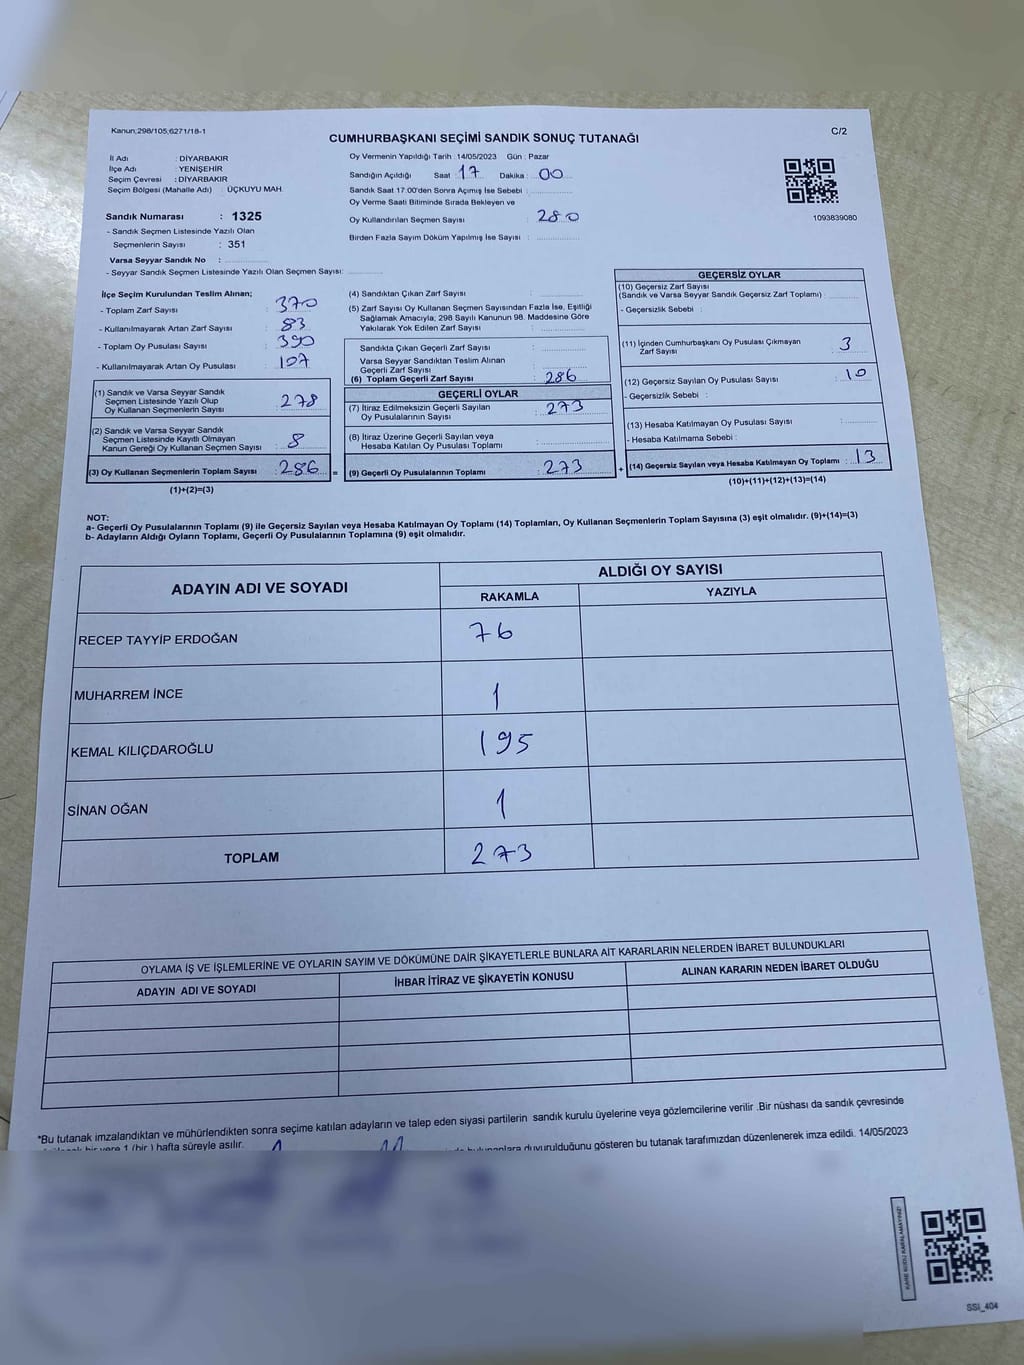 Kanun;298/105;6271/18-1
CUMHURBAŞKANI SEÇİMİ SANDIK SONUÇ TUTANAĞI
C/2
İl Adı : DİYARBAKIR
İlçe Adı : YENİŞEHİR
Seçim Çevresi : DİYARBAKIR
Seçim Bölgesi (Mahalle Adı) : ÜÇKUYU MAH.
Sandık Numarası : 1325
- Sandık Seçmen Listesinde Yazılı Olan
Seçmenlerin Sayısı : 351
Varsa Seyyar Sandık No :
- Seyyar Sandık Seçmen Listesinde Yazılı Olan Seçmen Sayısı:
Oy Vermenin Yapıldığı Tarih : 14/05/2023 Gün : Pazar
Sandığın Açıldığı Saat 17 Dakika : 00
Sandık Saat 17:00'den Sonra Açımış İse Sebebi :
Oy Verme Saati Bitiminde Sırada Bekleyen ve
Oy Kullandırılan Seçmen Sayısı : 280
Birden Fazla Sayım Döküm Yapılmış İse Sayısı :
1093839080
İlçe Seçim Kurulundan Teslim Alınan;
- Toplam Zarf Sayısı : 370
- Kullanılmayarak Artan Zarf Sayısı : 83
- Toplam Oy Pusulası Sayısı : 390
- Kullanılmayarak Artan Oy Pusulası : 107
(1) Sandık ve Varsa Seyyar Sandık
Seçmen Listesinde Yazılı Olup
Oy Kullanan Seçmenlerin Sayısı : 278
(2) Sandık ve Varsa Seyyar Sandık
Seçmen Listesinde Kayıtlı Olmayan
Kanun Gereği Oy Kullanan Seçmen Sayısı : 8
(3) Oy Kullanan Seçmenlerin Toplam Sayısı : 286 =
(1)+(2)=(3)
(4) Sandıktan Çıkan Zarf Sayısı :
(5) Zarf Sayısı Oy Kullanan Seçmen Sayısından Fazla İse, Eşitliği
Sağlamak Amacıyla; 298 Sayılı Kanunun 98. Maddesine Göre
Yakılarak Yok Edilen Zarf Sayısı :
Sandıkta Çıkan Geçerli Zarf Sayısı :
Varsa Seyyar Sandıktan Teslim Alınan
Geçerli Zarf Sayısı :
(6) Toplam Geçerli Zarf Sayısı : 286
GEÇERLİ OYLAR
(7) İtiraz Edilmeksizin Geçerli Sayılan
Oy Pusulalarının Sayısı : 273
(8) İtiraz Üzerine Geçerli Sayılan veya
Hesaba Katılan Oy Pusulası Toplamı :
(9) Geçerli Oy Pusulalarının Toplamı : 273 +
GEÇERSİZ OYLAR
(10) Geçersiz Zarf Sayısı
(Sandık ve Varsa Seyyar Sandık Geçersiz Zarf Toplamı) :
- Geçersizlik Sebebi :
(11) İçinden Cumhurbaşkanı Oy Pusulası Çıkmayan
Zarf Sayısı : 3
(12) Geçersiz Sayılan Oy Pusulası Sayısı : 10
- Geçersizlik Sebebi :
(13) Hesaba Katılmayan Oy Pusulası Sayısı :
- Hesaba Katılmama Sebebi :
(14) Geçersiz Sayılan veya Hesaba Katılmayan Oy Toplamı : 13
(10)+(11)+(12)+(13)=(14)
NOT:
a- Geçerli Oy Pusulalarının Toplamı (9) ile Geçersiz Sayılan veya Hesaba Katılmayan Oy Toplamı (14) Toplamları, Oy Kullanan Seçmenlerin Toplam Sayısına (3) eşit olmalıdır. (9)+(14)=(3)
b- Adayların Aldığı Oyların Toplamı, Geçerli Oy Pusulalarının Toplamına (9) eşit olmalıdır.
ADAYIN ADI VE SOYADI
ALDIĞI OY SAYISI
RAKAMLA YAZIYLA
RECEP TAYYİP ERDOĞAN 76
MUHARREM İNCE 1
KEMAL KILIÇDAROĞLU 195
SİNAN OĞAN 1
TOPLAM 273
OYLAMA İŞ VE İŞLEMLERİNE VE OYLARIN SAYIM VE DÖKÜMÜNE DAİR ŞİKAYETLERLE BUNLARA AİT KARARLARIN NELERDEN İBARET BULUNDUKLARI
ADAYIN ADI VE SOYADI İHBAR İTİRAZ VE ŞİKAYETİN KONUSU ALINAN KARARIN NEDEN İBARET OLDUĞU
*Bu tutanak imzalandıktan ve mühürlendikten sonra seçime katılan adayların ve talep eden siyasi partilerin sandık kurulu üyelerine veya gözlemcilerine verilir .Bir nüshası da sandık çevresinde
bir yere 1 (bir ) hafta süreyle asılır. bulunanlara duyurulduğunu gösteren bu tutanak tarafımızdan düzenlenerek imza edildi. 14/05/2023
KARE KODU KARALAMAYINIZ!
SSI_404